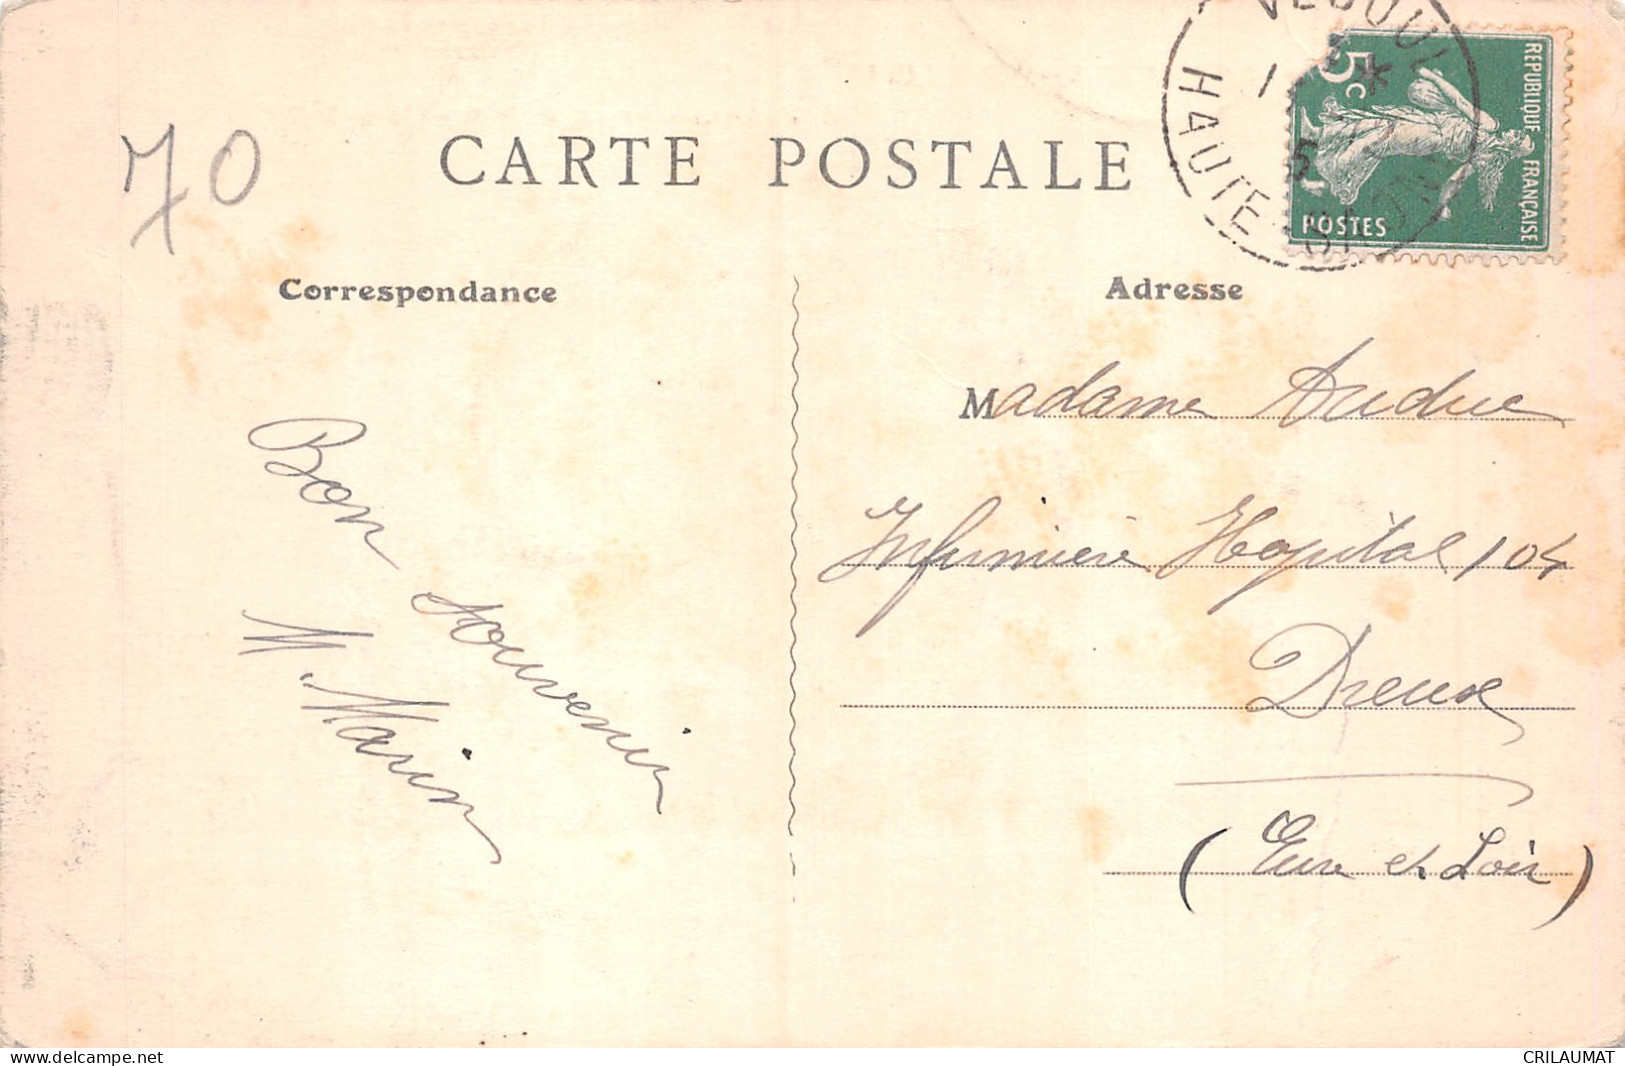 70
CARTE POSTALE
VESOUL
HAUTE-SAONE
1
5
5c
REPUBLIQUE FRANÇAISE
POSTES
Correspondance
Adresse
Bon souvenir
M. Marin
Madame Auduc
Infirmière Hopital 104
Dreux
(Eure et Loir)
www.delcampe.net
CRILAUMAT